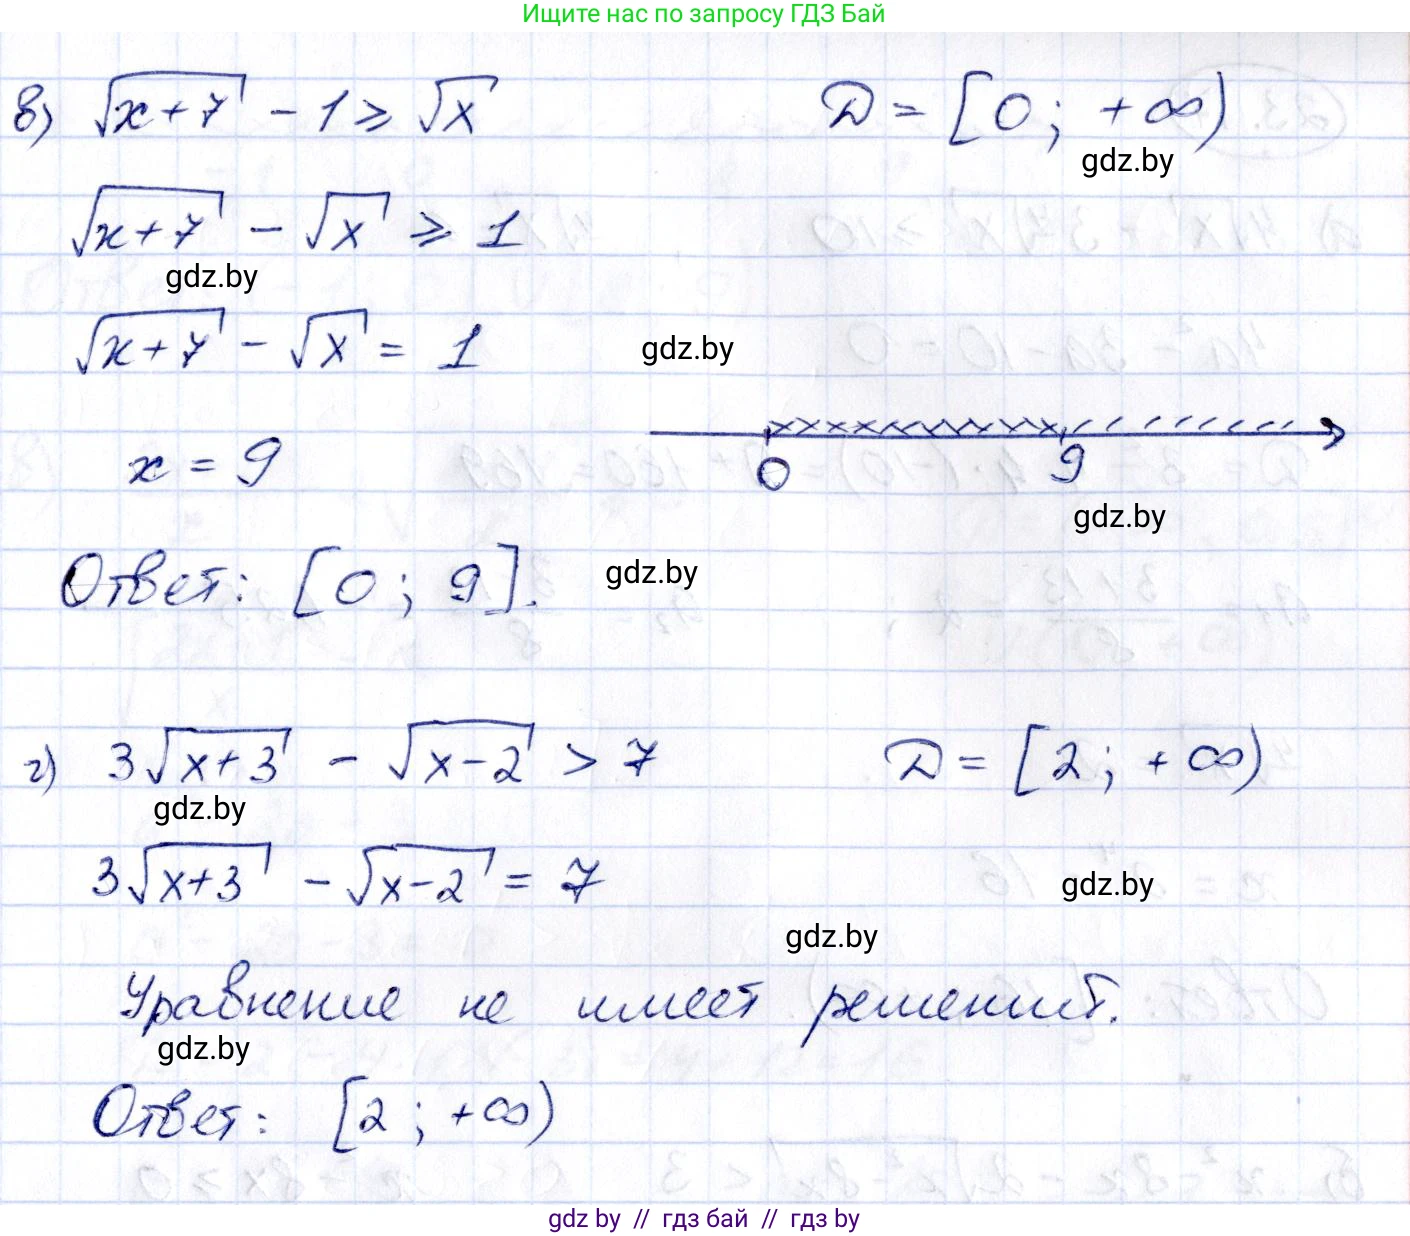 Ищите нас по запросу ГДЗ Бай
в) √(x+7) - 1 ≥ √x D = [0; +∞)
gdz.by
√(x+7) - √x ≥ 1
gdz.by
√(x+7) - √x = 1
gdz.by
x = 9
0 9
gdz.by
Ответ: [0; 9].
gdz.by
г) 3√(x+3) - √(x-2) > 7 D = [2; +∞)
gdz.by
3√(x+3) - √(x-2) = 7
gdz.by
gdz.by
Уравнение не имеет решений.
gdz.by
Ответ: [2; +∞)
gdz by // гдз бай // гдз by